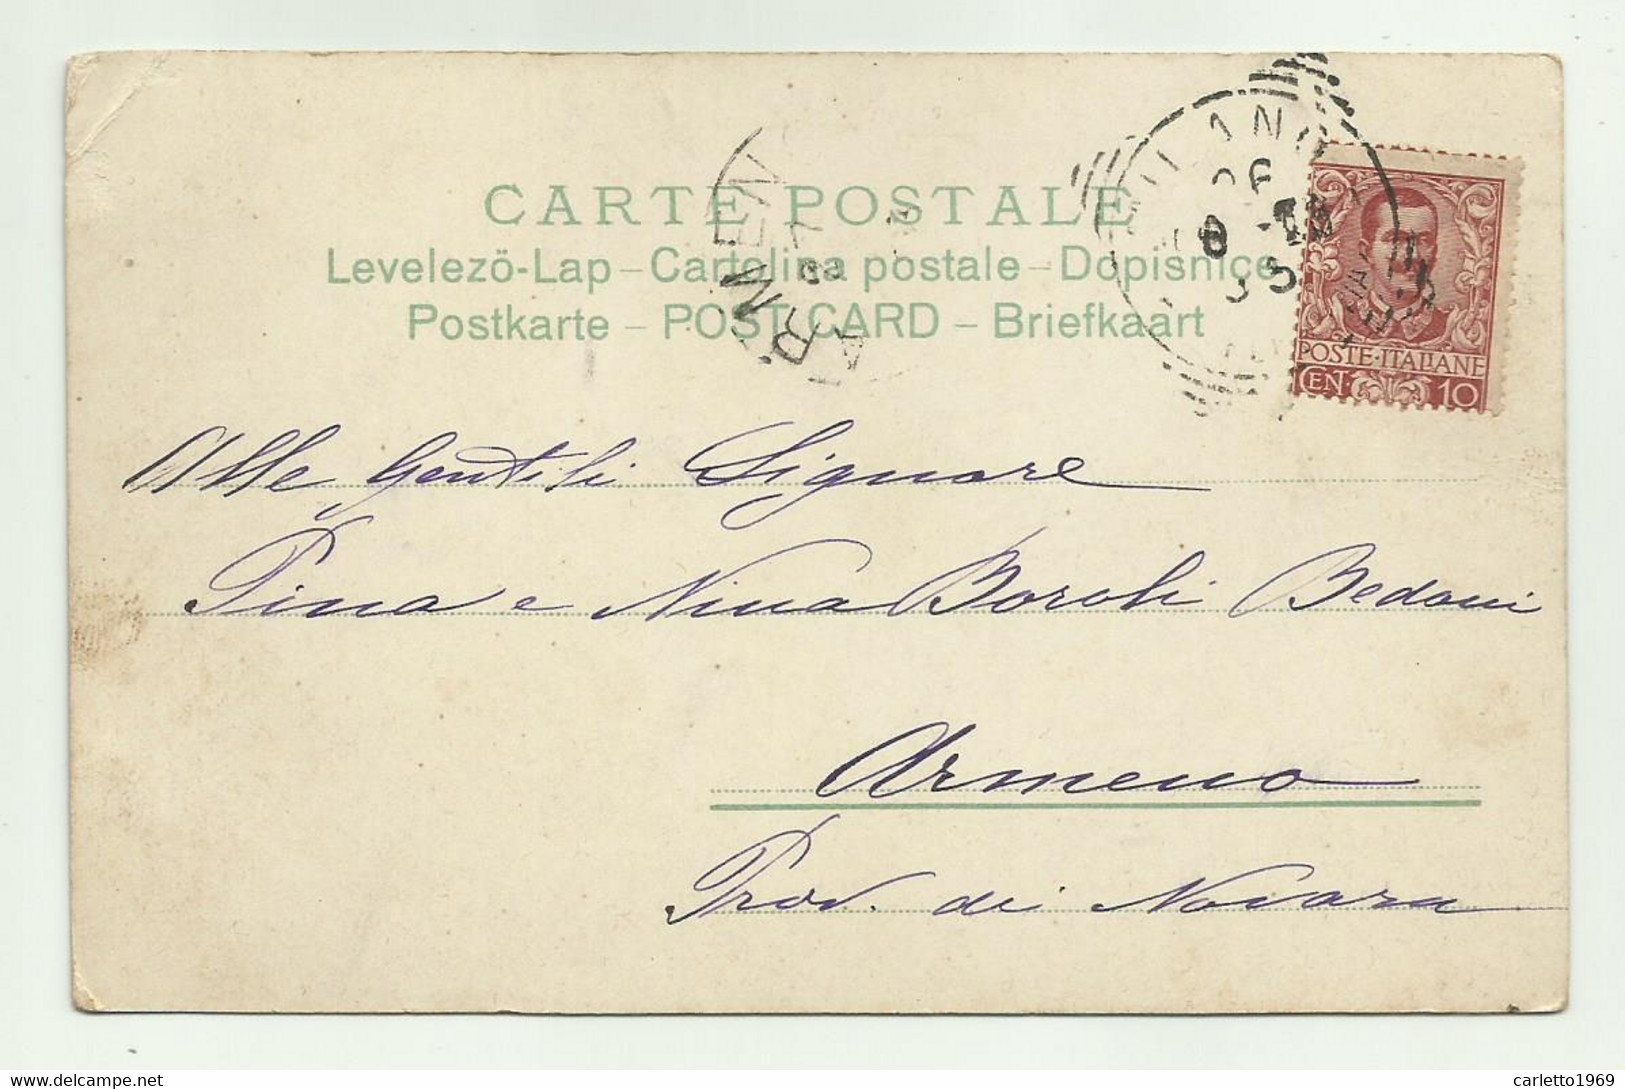 CARTE POSTALE
Levelezö-Lap – Cartolina postale – Dopisnice
Postkarte – POST CARD – Briefkaart
MILANO
ARMENO
POSTE·ITALIANE
CEN. 10
Alle Gentili Signore
Pina e Nina Boroli Bedoni
Armeno
Prov. di Novara
carletto1969